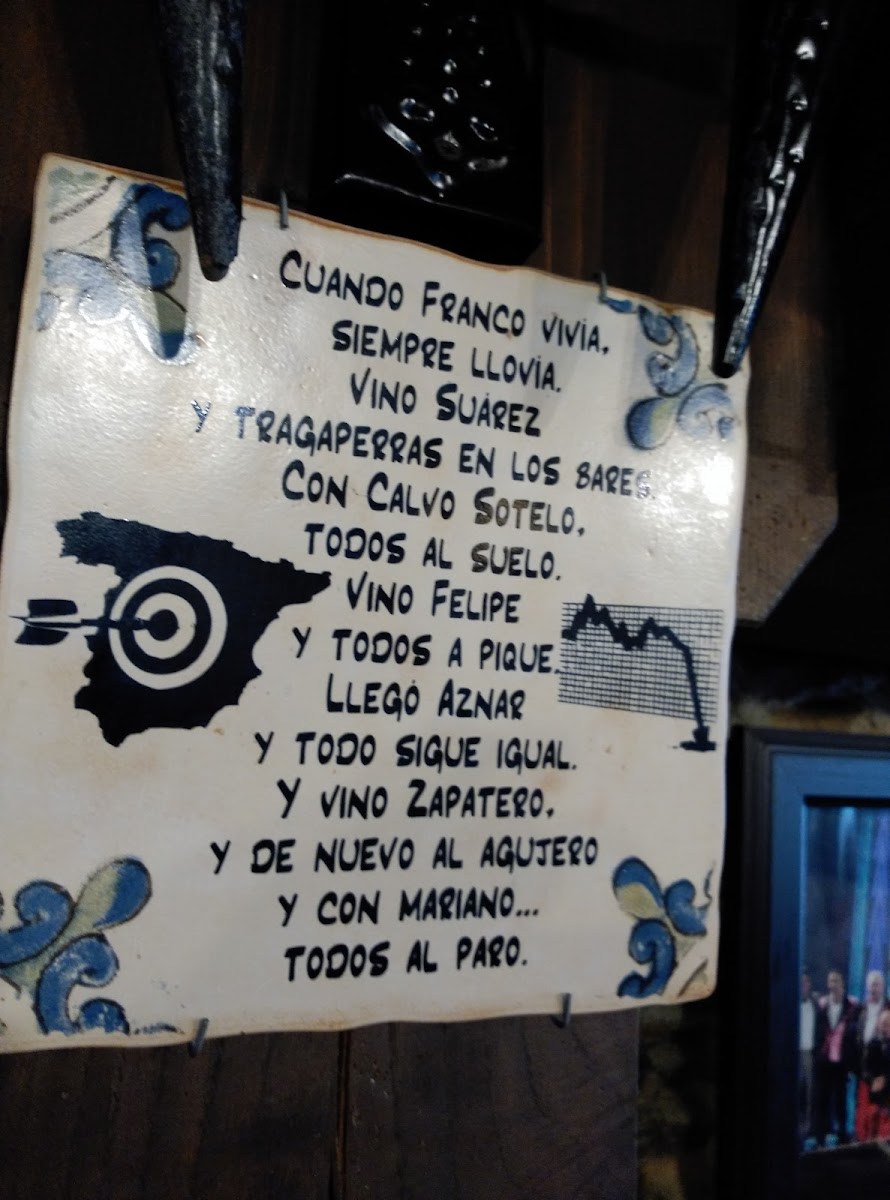 CUANDO FRANCO VIVÍA,
SIEMPRE LLOVÍA.
VINO SUÁREZ
Y TRAGAPERRAS EN LOS BARES.
CON CALVO SOTELO,
TODOS AL SUELO.
VINO FELIPE
Y TODOS A PIQUE.
LLEGÓ AZNAR
Y TODO SIGUE IGUAL.
Y VINO ZAPATERO,
Y DE NUEVO AL AGUJERO
Y CON MARIANO...
TODOS AL PARO.